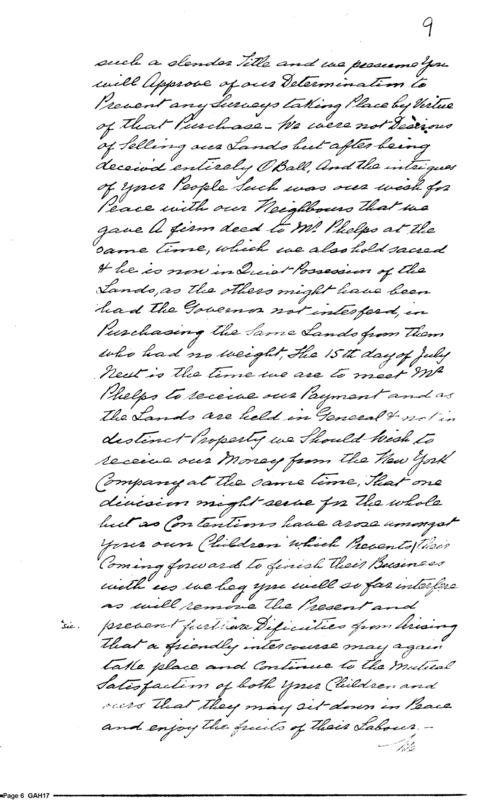 9
such a slender Title and we presume You
will Approve of our Determination to
Prevent any Surveys taking Place by Virtue
of that Purchase - We were not Desirous
of Selling our Lands but after being
deceiv'd entirely O'Bail, And the intrigues
of your People Such was our wish for
Peace with our Neighbours that we
gave A firm deed to Mr. Phelps at the
same time, which we also hold sacred
& he is now in Quiet Possession of the
Lands, as the others might have been
had the Governor not interferd, in
Purchasing the Same Lands from them
who had no weight, The 15th day of July
Next is the time we are to meet Mr
Phelps to receive our Payment and as
the Lands are held in General & not in
distinct Property we Should Wish to
receive our Money from the New York
Company at the same time, That one
division might serve for the whole
but as Contentions have arose amongst
Your own Children which Prevents their
Coming forward to finish their Business
with us we beg you will so far interfere
as will remove the Present and
Sic. prevent further Dificities from Arising
that a friendly intercourse may again
take place and Continue to the Mutual
Satisfaction of both Your Children and
ours that they may sit down in Peace
and enjoy the fruits of their Labour. -
Page 6 GAH17